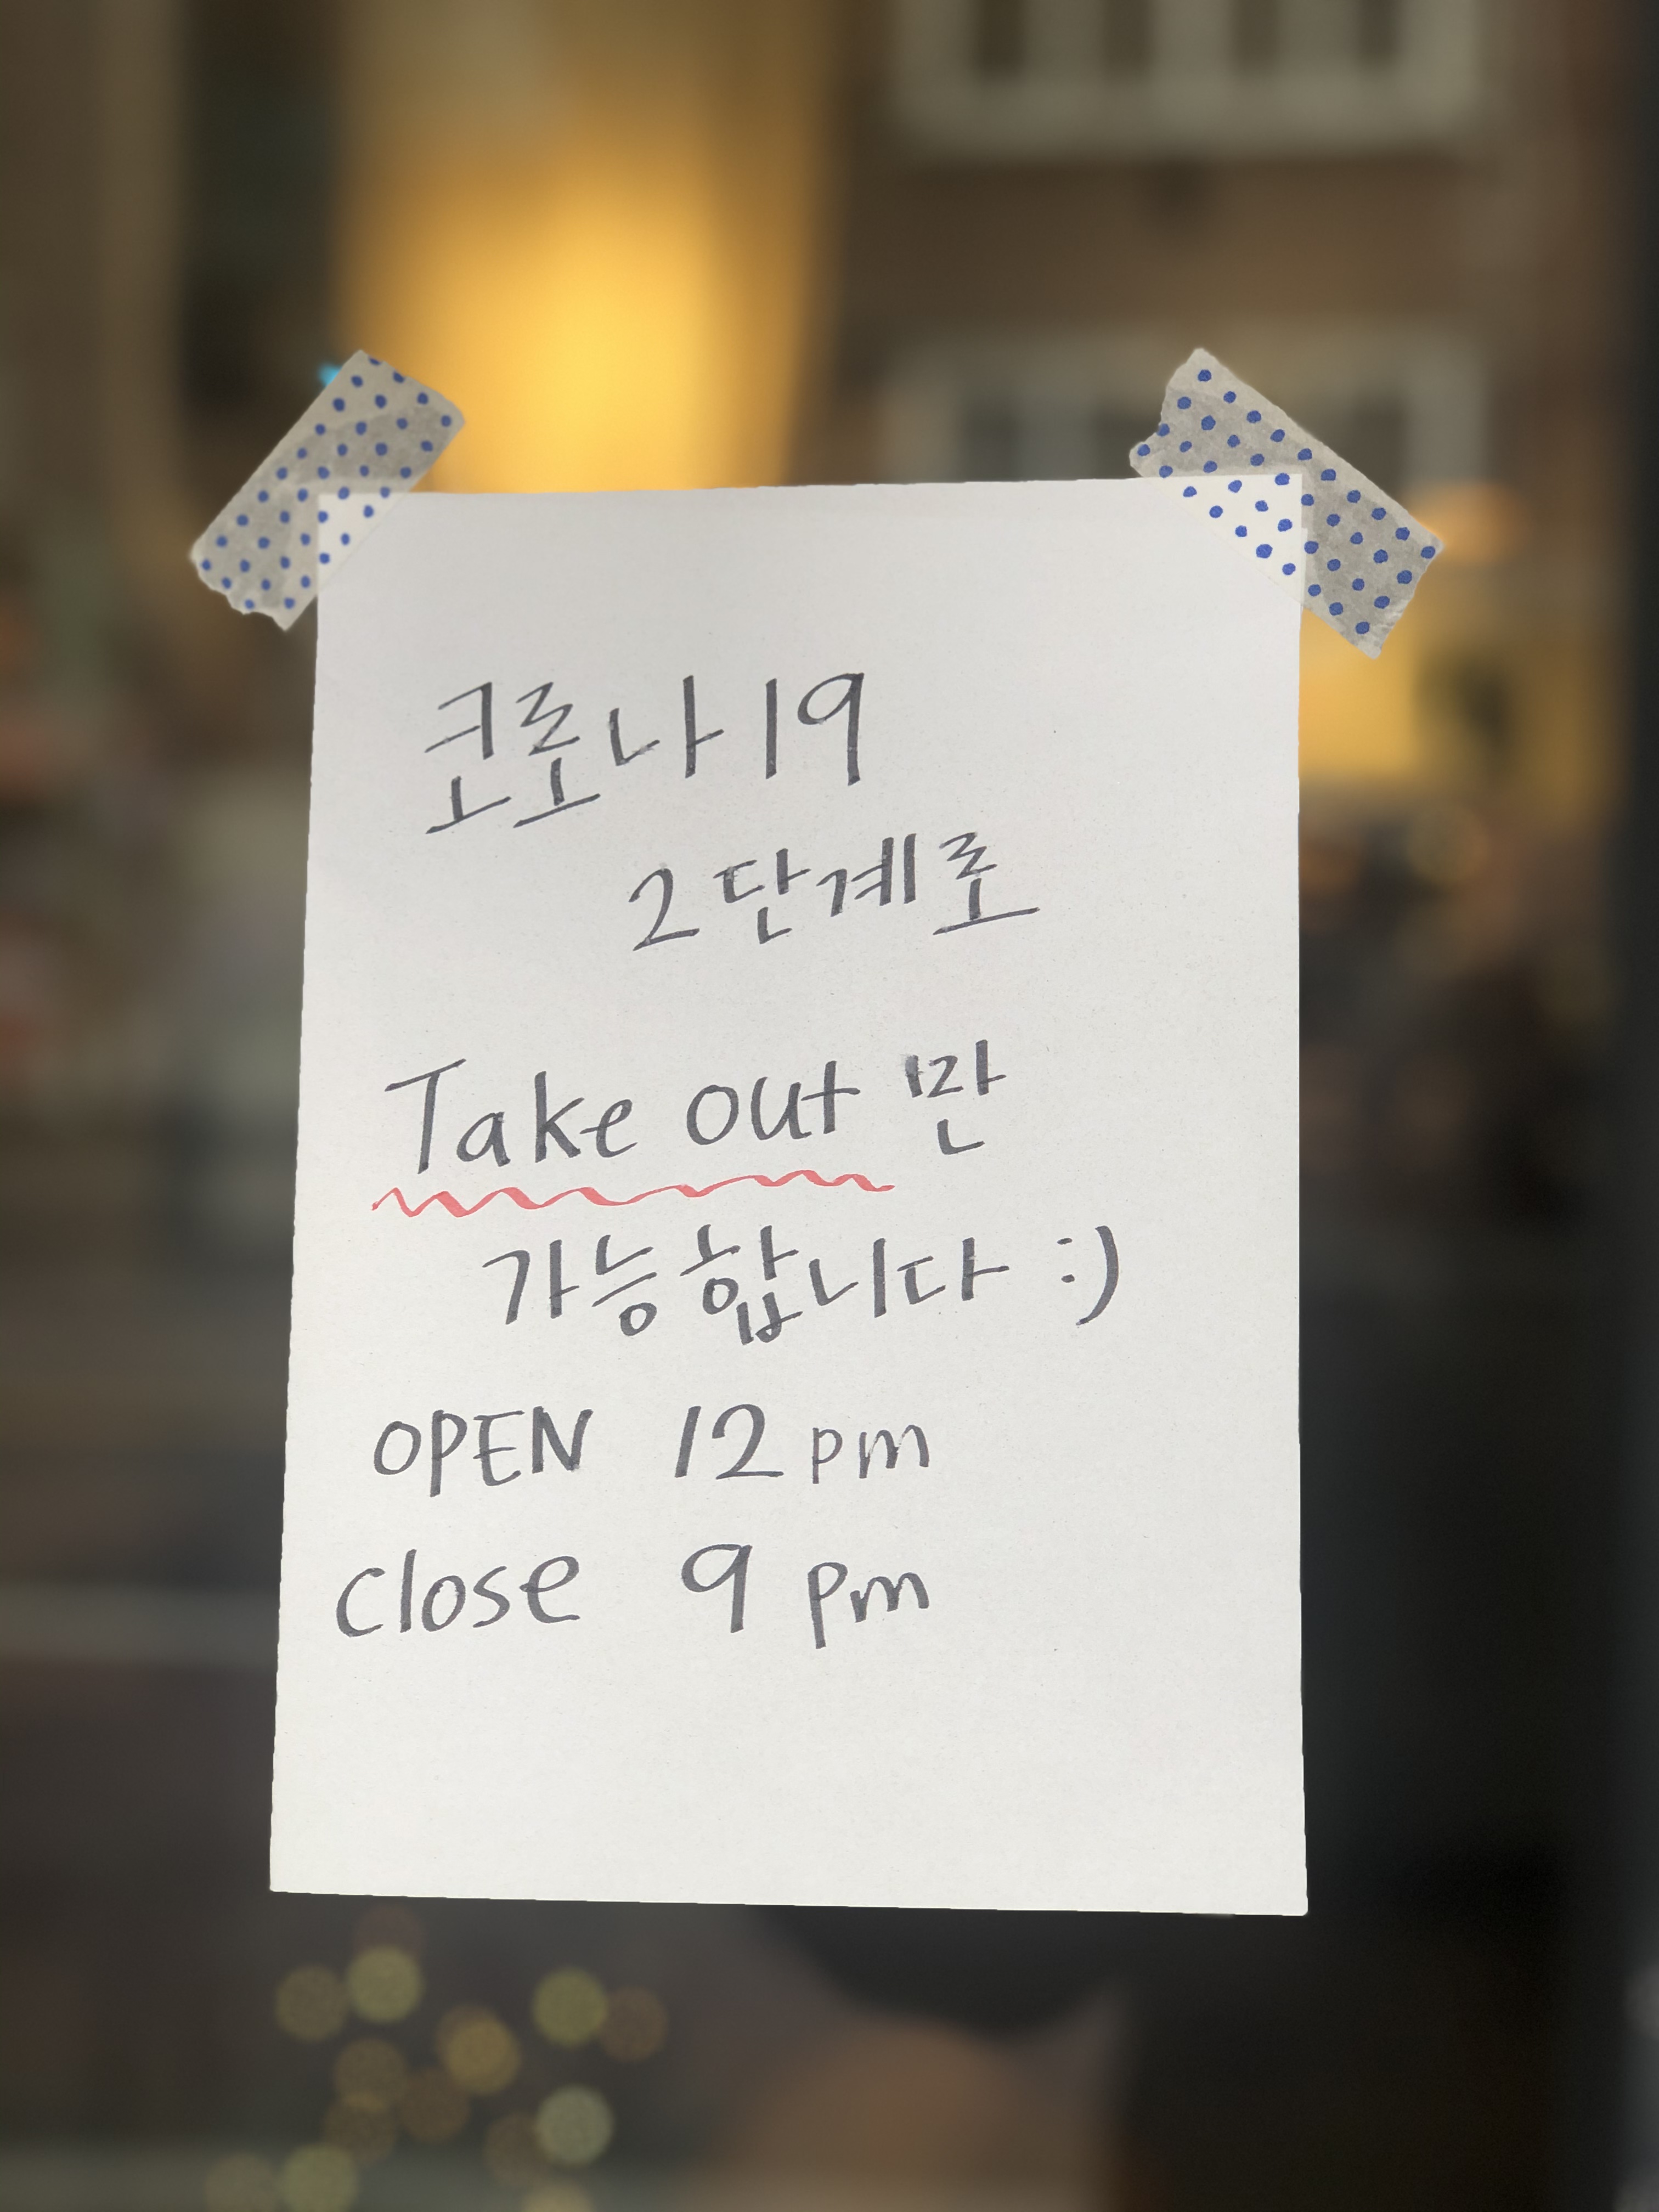 코로나19
2단계로
Take out 만
가능합니다 :)
OPEN 12 pm
close 9 pm